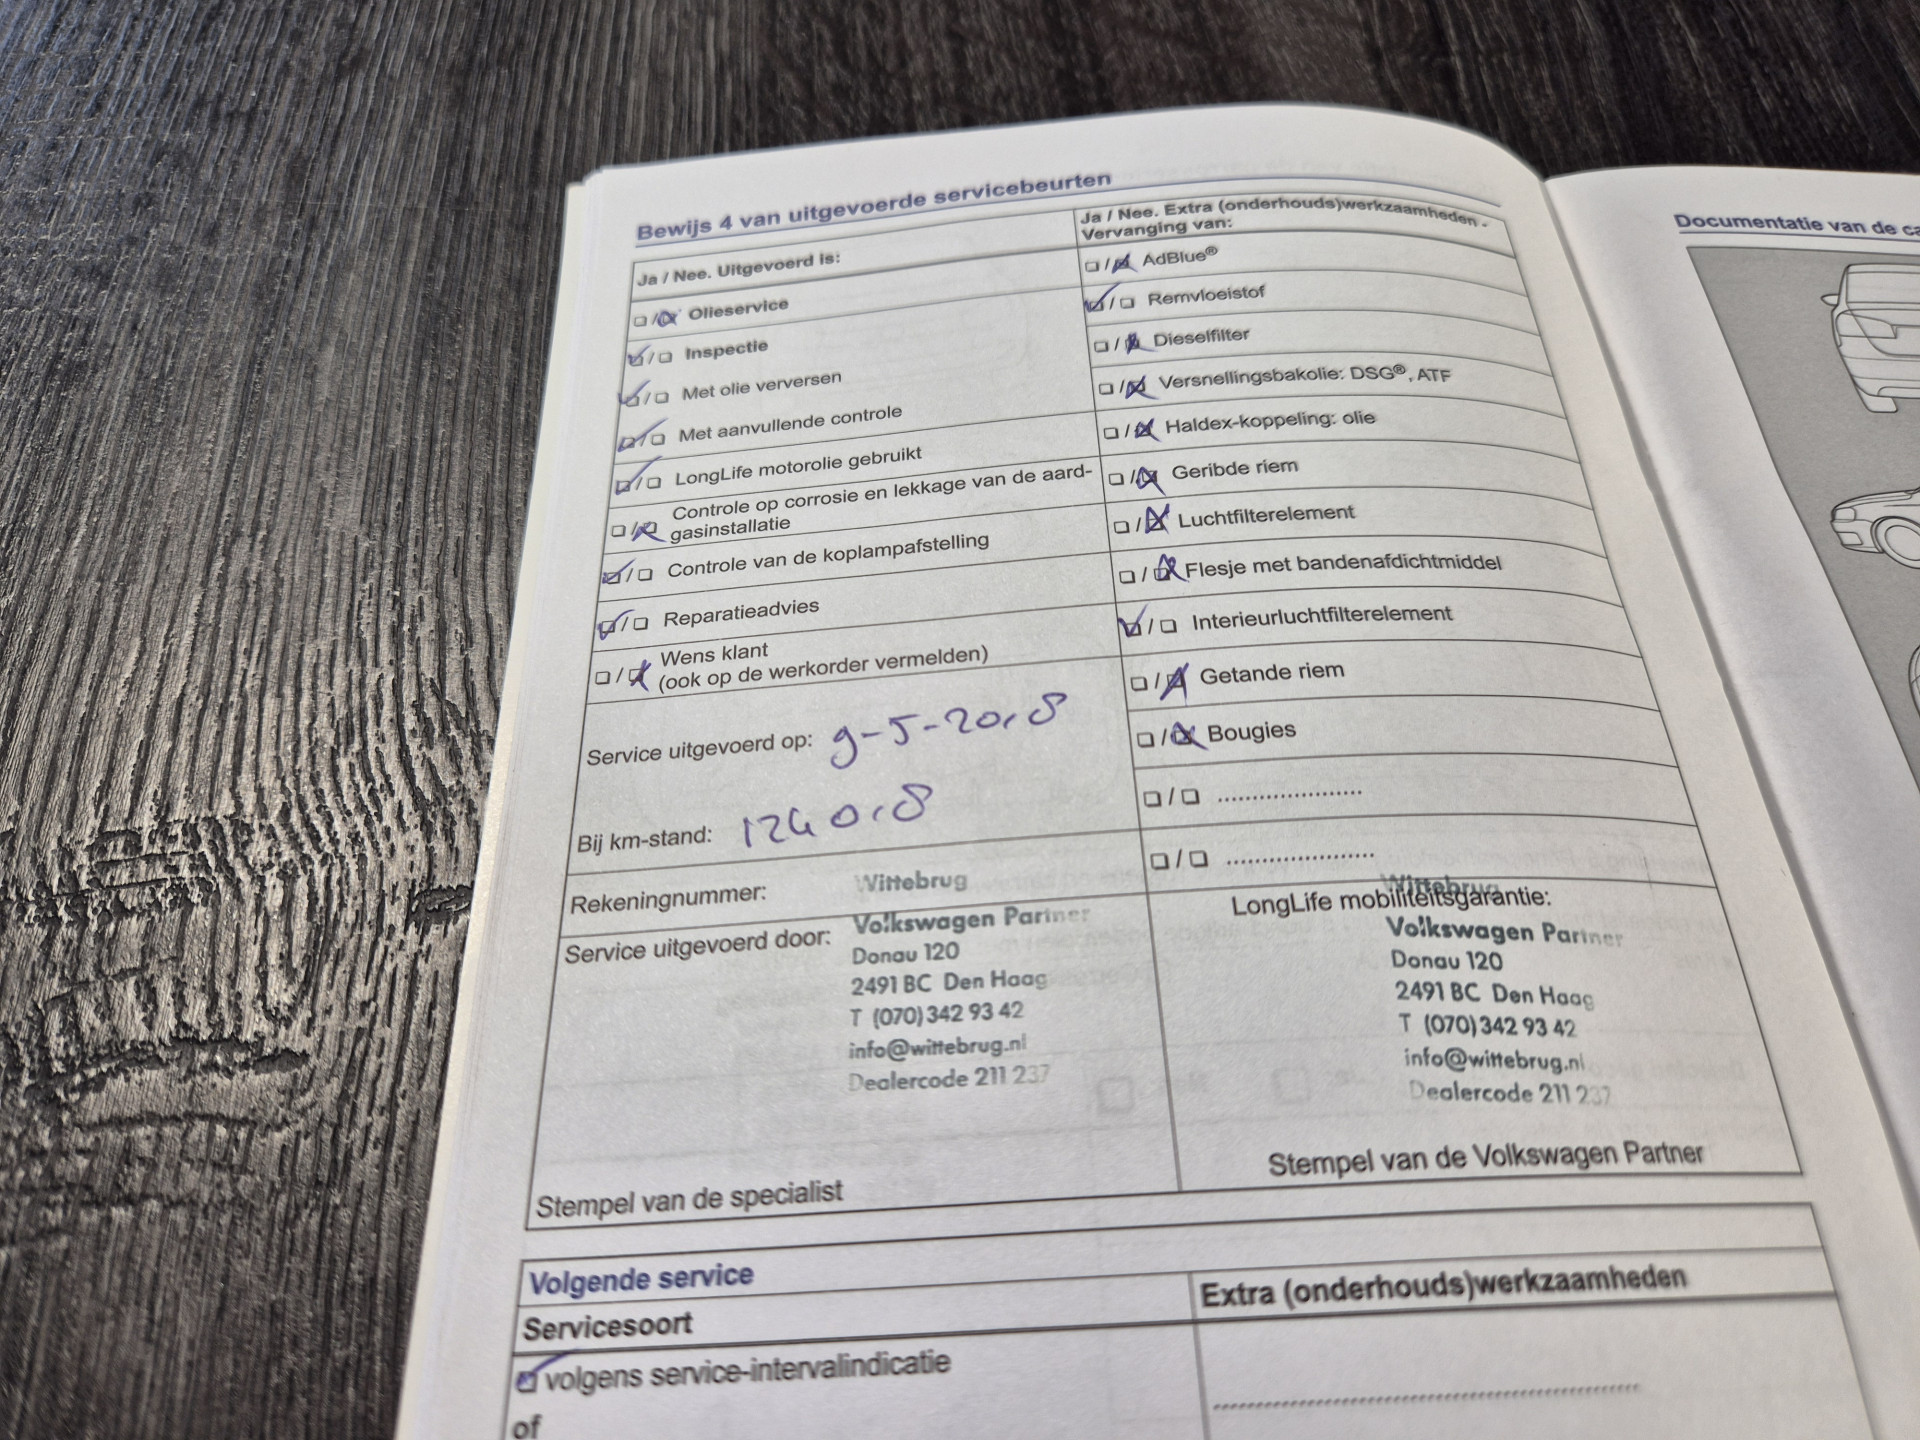 Bewijs 4 van uitgevoerde servicebeurten
Ja / Nee. Uitgevoerd is:
❏/❏ Olieservice
❏/❏ Inspectie
❏/❏ Met olie verversen
❏/❏ Met aanvullende controle
❏/❏ LongLife motorolie gebruikt
❏/❏ Controle op corrosie en lekkage van de aard-
gasinstallatie
❏/❏ Controle van de koplampafstelling
❏/❏ Reparatieadvies
❏/❏ Wens klant
(ook op de werkorder vermelden)
Service uitgevoerd op: 9-5-2018
Bij km-stand: 124018
Rekeningnummer:
Service uitgevoerd door:
Wittebrug
Volkswagen Partner
Donau 120
2491 BC Den Haag
T (070) 342 93 42
info@wittebrug.nl
Dealercode 211 237
Stempel van de specialist
Ja / Nee. Extra (onderhouds)werkzaamheden -
Vervanging van:
❏/❏ AdBlue®
❏/❏ Remvloeistof
❏/❏ Dieselfilter
❏/❏ Versnellingsbakolie: DSG®, ATF
❏/❏ Haldex-koppeling: olie
❏/❏ Geribde riem
❏/❏ Luchtfilterelement
❏/❏ Flesje met bandenafdichtmiddel
❏/❏ Interieurluchtfilterelement
❏/❏ Getande riem
❏/❏ Bougies
❏/❏ .....................
❏/❏ .....................
LongLife mobiliteitsgarantie:
Wittebrug
Volkswagen Partner
Donau 120
2491 BC Den Haag
T (070) 342 93 42
info@wittebrug.nl
Dealercode 211 237
Stempel van de Volkswagen Partner
Volgende service
Servicesoort
❏ volgens service-intervalindicatie
of
Extra (onderhouds)werkzaamheden
Documentatie van de